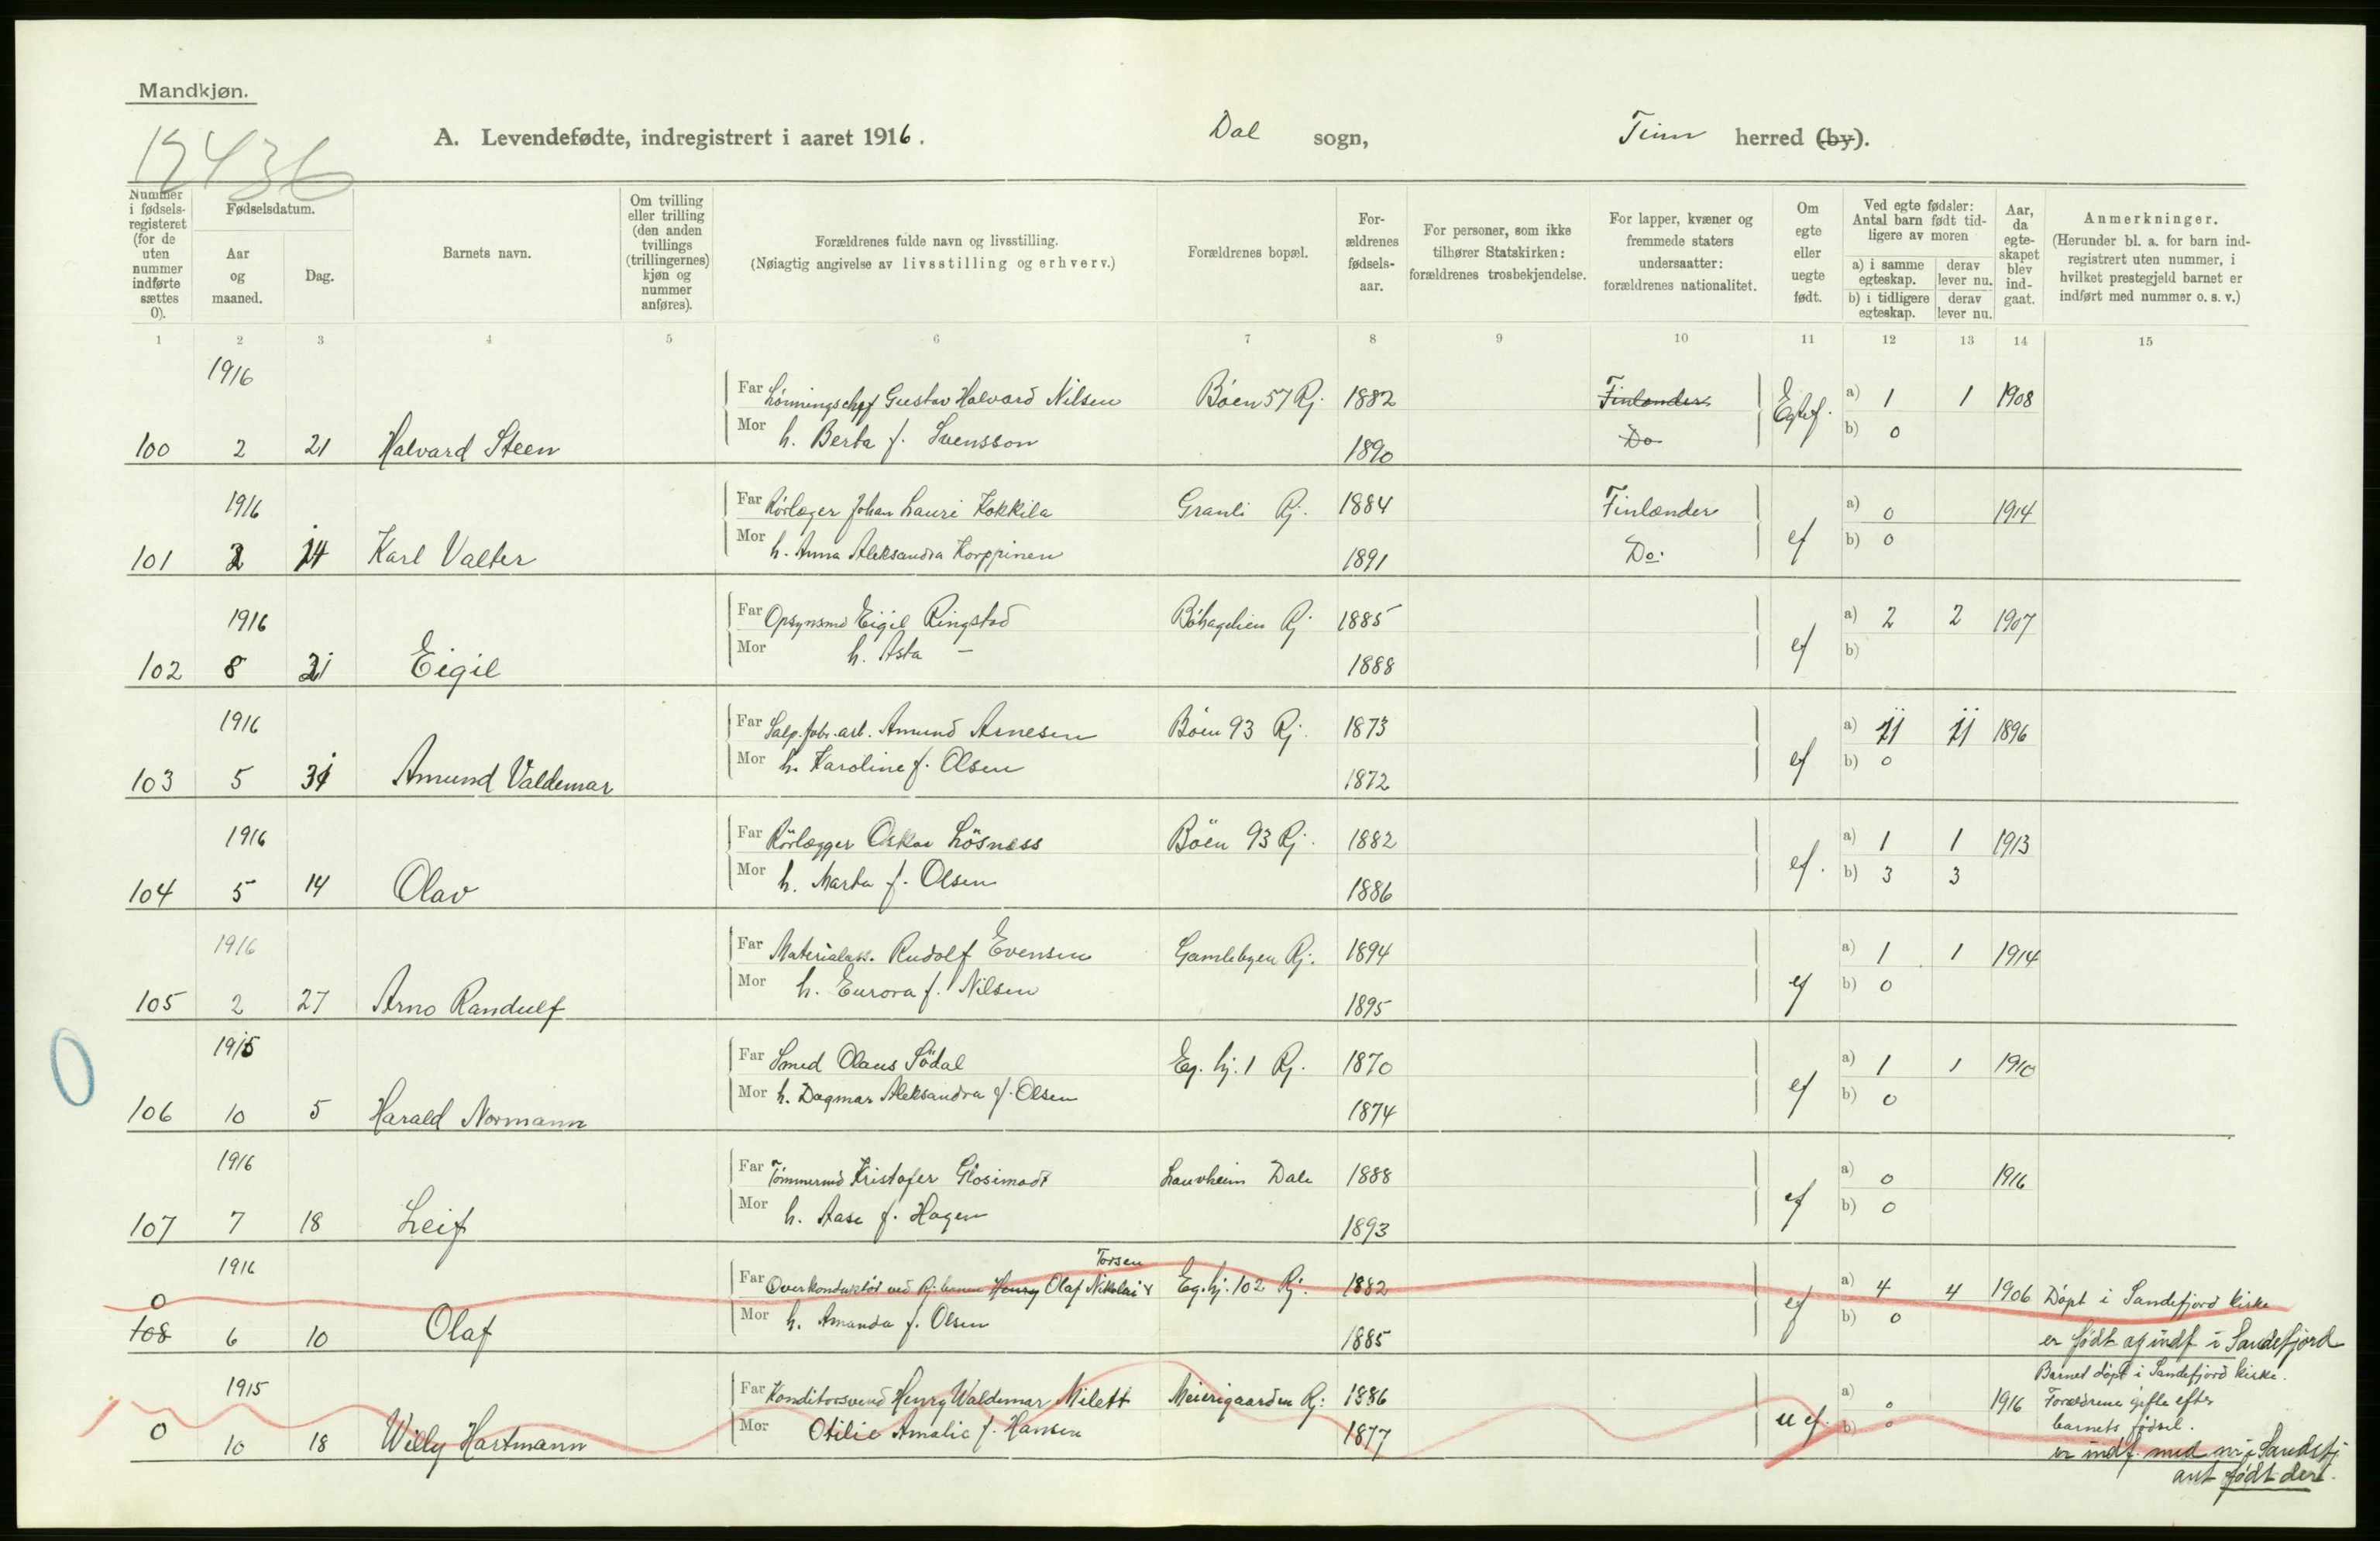 Mandkjøn.
12436
A. Levendefødte, indregistrert i aaret 1916. Dal sogn, Tinn herred (by).
Nummer i fødselsregisteret (for de uten nummer indførte sættes 0).
Fødselsdatum.
Aar og maaned.
Dag.
Barnets navn.
Om tvilling eller trilling (den anden tvillings (trillingernes) kjøn og nummer anføres).
Forældrenes fulde navn og livsstilling.
(Nøiagtig angivelse av livsstilling og erhverv.)
Forældrenes bopæl.
For-ældrenes fødsels-aar.
For personer, som ikke tilhører Statskirken: forældrenes trosbekjendelse.
For lapper, kvæner og fremmede staters undersaatter: forældrenes nationalitet.
Om egte eller uegte født.
Ved egte fødsler: Antal barn født tidligere av moren
a) i samme egteskap. derav lever nu.
b) i tidligere egteskap. derav lever nu.
Aar, da egteskapet blev indgaat.
Anmerkninger.
(Herunder bl. a. for barn indregistrert uten nummer, i hvilket prestegjeld barnet er indført med nummer o. s. v.)
1 2 3 4 5 6 7 8 9 10 11 12 13 14 15
1916 Far Lønningschef Gustav Halvard Nilsen Bøen 57 Rj. 1882 Finlænder Egtef. a) 1 1 1908
100 2 21 Halvard Steen Mor h. Berta f. Svensson 1890 Do b) 0
1916 Far Rørlæger Johan Lauri Kokkila Granli Rj. 1884 Finlænder ef a) 0 1914
101 2 14 Karl Valter Mor h. Anna Aleksandra Korppinen 1891 Do. b) 0
1916 Far Opsynsmd Eigil Ringstad Bøhagelien Rj 1885 ef a) 2 2 1907
102 8 21 Eigil Mor h. Asta — 1888 b)
1916 Far Salp.fabr.arb. Amund Arnesen Bøen 93 Rj. 1873 ef a) 11 11 1896
103 5 31 Amund Valdemar Mor h. Karoline f. Olsen 1872 b) 0
1916 Far Rörlægger Oskar Lösness Böen 93 Rj. 1882 ef. a) 1 1 1913
104 5 14 Olav Mor h. Marta f. Olsen 1886 b) 3 3
1916 Far Materialass. Rudolf Evensen Gamlebyen Rj. 1894 ef a) 1 1 1914
105 2 27 Arno Randulf Mor h. Eurora f. Nilsen 1895 b) 0
1915 Far Smed Olaus Södal Eg. hj. 1 Rj. 1870 ef a) 1 1 1910
0 106 10 5 Harald Normann Mor h. Dagmar Aleksandra f. Olsen 1874 b) 0
1916 Far Tømmermd Kristofer Glosimodt Lauvheim Dale 1888 ef a) 0 1916
107 7 18 Leif Mor h. Aase f. Hagen 1893 b) 0
Torsen
1916 Far Overkonduktør ved Rj. banen Henry Olaf Nikolai Eg. hj. 102 Rj. 1882 ef a) 4 4 1906 Døpt i Sandefjord kirke
0
108 6 10 Olaf Mor h. Amanda f. Olsen 1885 b) 0 er født og indf i Sandefjord
1915 Far Konditorsvend Henry Waldemar Milett Meierigaarden Rj: 1886 u ef. a) 0 1916 Barnet døpt i Sandefjord kirke.
Forældrene gifte efter
barnets fødsel.
0 10 18 Willy Hartmann Mor Otilie Amalie f. Hansen 1877 b) 0 er indf. med nr i Sandefj
ant født der.